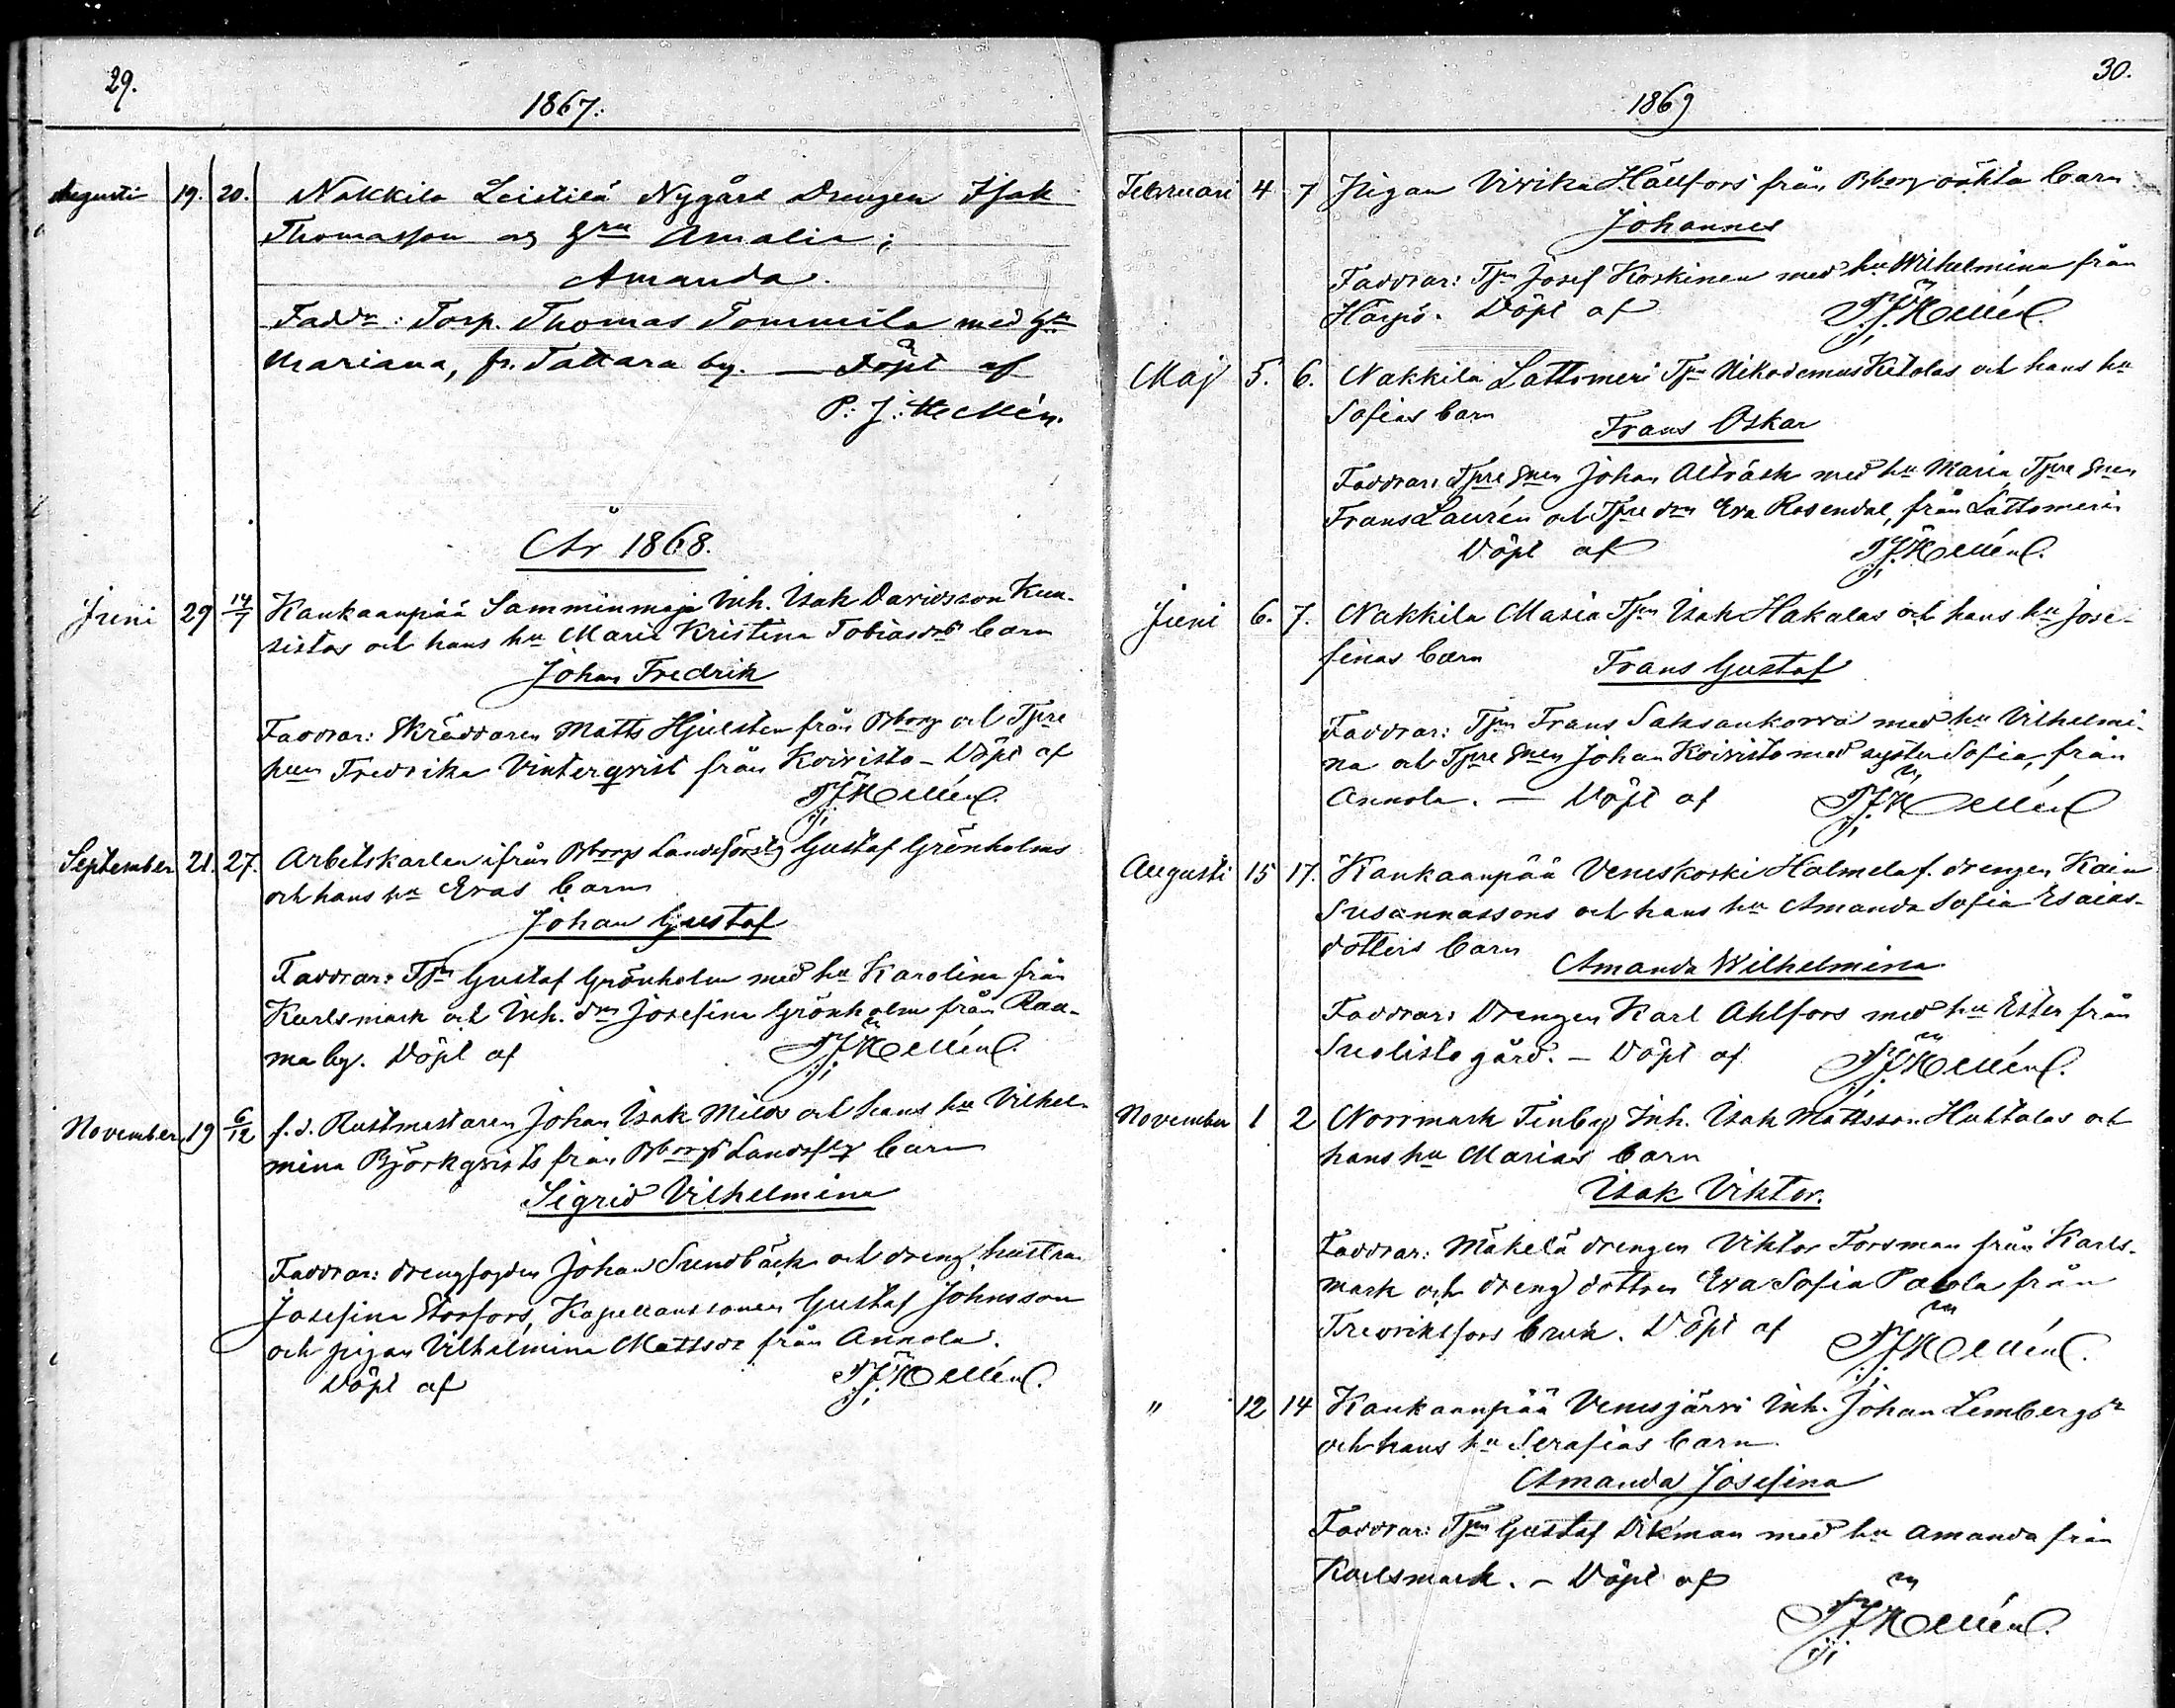 29.
1867.
Augusti 19. 20. Nakkila Leistilä Nygård Drengen Isak
Thomasson och Hru Amalia;
Amanda.
Faddr: Torp. Thomas Tommila med Hu
Mariana, fr. Tattara by. — Döpt af
P. J. Hellén.
År 1868.
Juni 29 14/7 Kankaanpää Samminmaja Inh. Isak Davidsson Kun-
sistos och hans hu Maria Kristina Tobiasdrs barn
Johan Fredrik
Faddrar: Skräddaren Matts Hjulsten från Bborg och Tpre
hun Fredrika Vinterqvist från Koivisto - Döpt af
PJHellén.
September 21. 27. Arbetskarlen ifrån Bborgs Landsförsg Gustaf Grönholms
och hans hu Evas barn
Johan Gustaf
Faddrar: Tpn Gustaf Grönholm med hu Karolina från
Karlsmark och Inh. drn Josefina Grönholm från Rau-
ma by. Döpt af PJHellén.
November 19 6/12 f.d. Rustmästaren Johan Isak Milds och hans hu Vilhel-
mina Björkqvists från Bborgs Landsfsg barn
Sigrid Vilhelmina
Faddrar: drengfogden Johan Sundbäck och dreng hustrun
Josefina Storfors, Kapellanssonen Gustaf Johnsson
och pigan Vilhelmina Mattsdr från Annola.
Döpt af PJHellén.
30.
1869
Februari 4 7 Pigan Vivika Hällfors från Bborg oäkta barn
Johannes
Faddrar: Tpn Josef Koskinen med hu Wilhelmina från
Harjo. Döpt af PJHellén.
Maj 5. 6. Nakkila Lattomeri Tpn Nikodemus Ketolas och hans hu
Sofias barn
Frans Oskar
Faddrar: Tpre snen Johan Alträsk med hu Maria, Tpre snen
Frans Laurén och Tpre drn Eva Rosendal, från Lattomeri
Döpt af PJHellén.
Juni 6. 7. Nakkila Masia Tpn Isak Hakalas och hans hu Jose-
finas barn
Frans Gustaf
Faddrar: Tpn Frans Saksankorva med hu Vilhelmi-
na och Tpre snen Johan Koivisto med syster Sofia, från
Annola. — Döpt af PJHellén
Augusti 15 17. Kankaanpää Veneskoski Halmela f. drengen Kain
Susannassons och hans hu Amanda Sofia Esaias-
dotters barn
Amanda Wilhelmina
Faddrar: Drengen Karl Ahlfors med hu Ester från
Suolisto gård. - Döpt af PJHellén.
November 1 2 Norrmark Finby Inh. Isak Mattsson Huhtalas och
hans hu Marias barn
Isak Viktor.
Faddrar: Mäkelä drengen Viktor Forsman från Karls-
mark och dreng dottren Eva Sofia Palola från
Fredriksfors bruk. Döpt af PJHellén.
" 12 14 Kankaanpää Venesjärvi Inh. Johan Lembergs
och hans hu Serafias barn
Amanda Josefina
Faddrar: Tpn Gustaf Vikman med hu Amanda från
Karlsmark. - Döpt af
PJHellén.